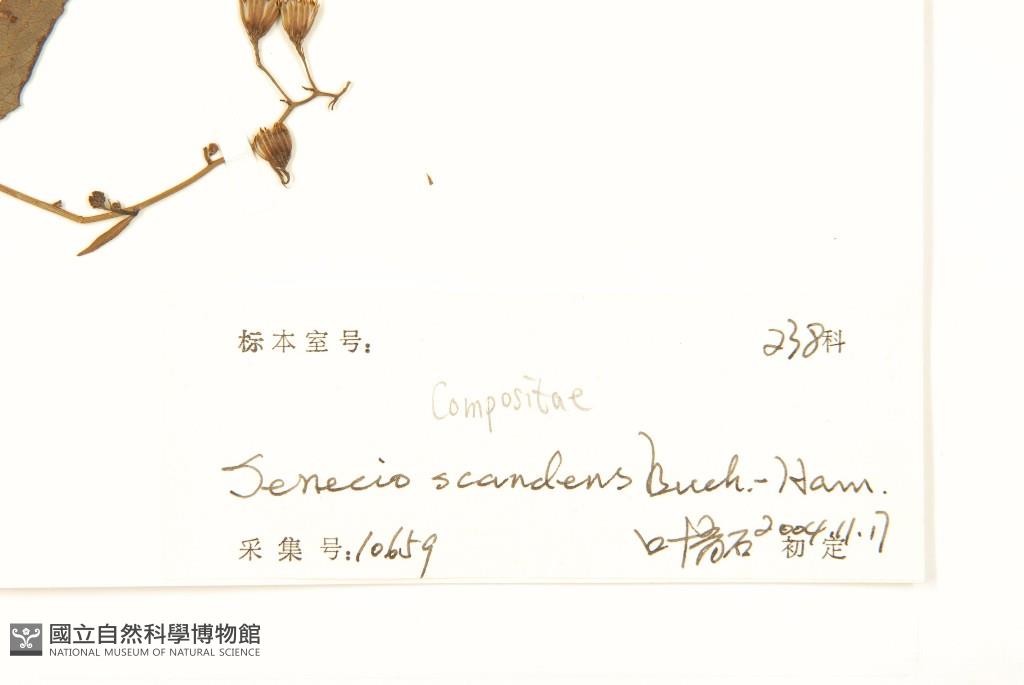 标本室号: 238科
Compositae
Senecio scandens Buch.-Ham.
采集号:10659 叶 石 2004.11.17 初定
國立自然科學博物館
NATIONAL MUSEUM OF NATURAL SCIENCE